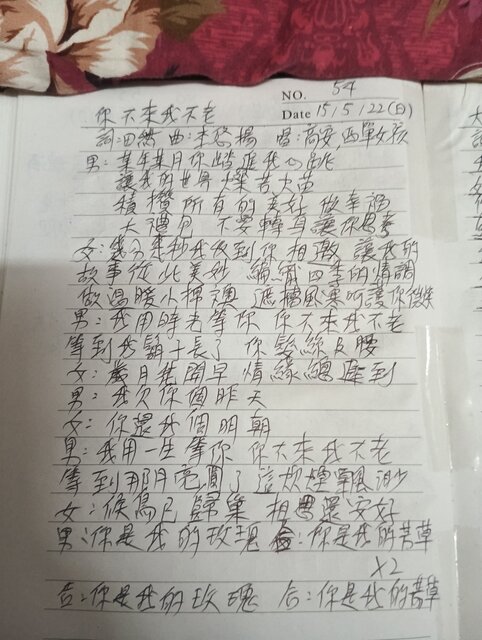 NO. 54
你不來我不老
Date 15/5/22(日)
詞:田 曲:李悠揚 唱:高安 西單女孩
男:某年某月你踏進我心跳
讓我的世界燦若火苗
積攢所有的美好做幸福
大禮包 不要轉身讓你思考
女:幾分幾秒我收到你相邀 讓我的
故事從此美妙 編織四季的情調
做溫暖小棉襖 遮擋風寒呵護你微笑
男:我用時光等你 你不來我不老
等到我鬍子長了 你髮絲及腰
女:歲月花開早 情緣總遲到
男:我欠你個昨天
女:你還我個明朝
男:我用一生等你 你不來我不老
等到那月亮圓了 這炊煙飄渺
女:候鳥已歸巢 相遇還安好
男:你是我的玫瑰 合:你是我的若草
X2
合:你是我的玫瑰 合:你是我的若草